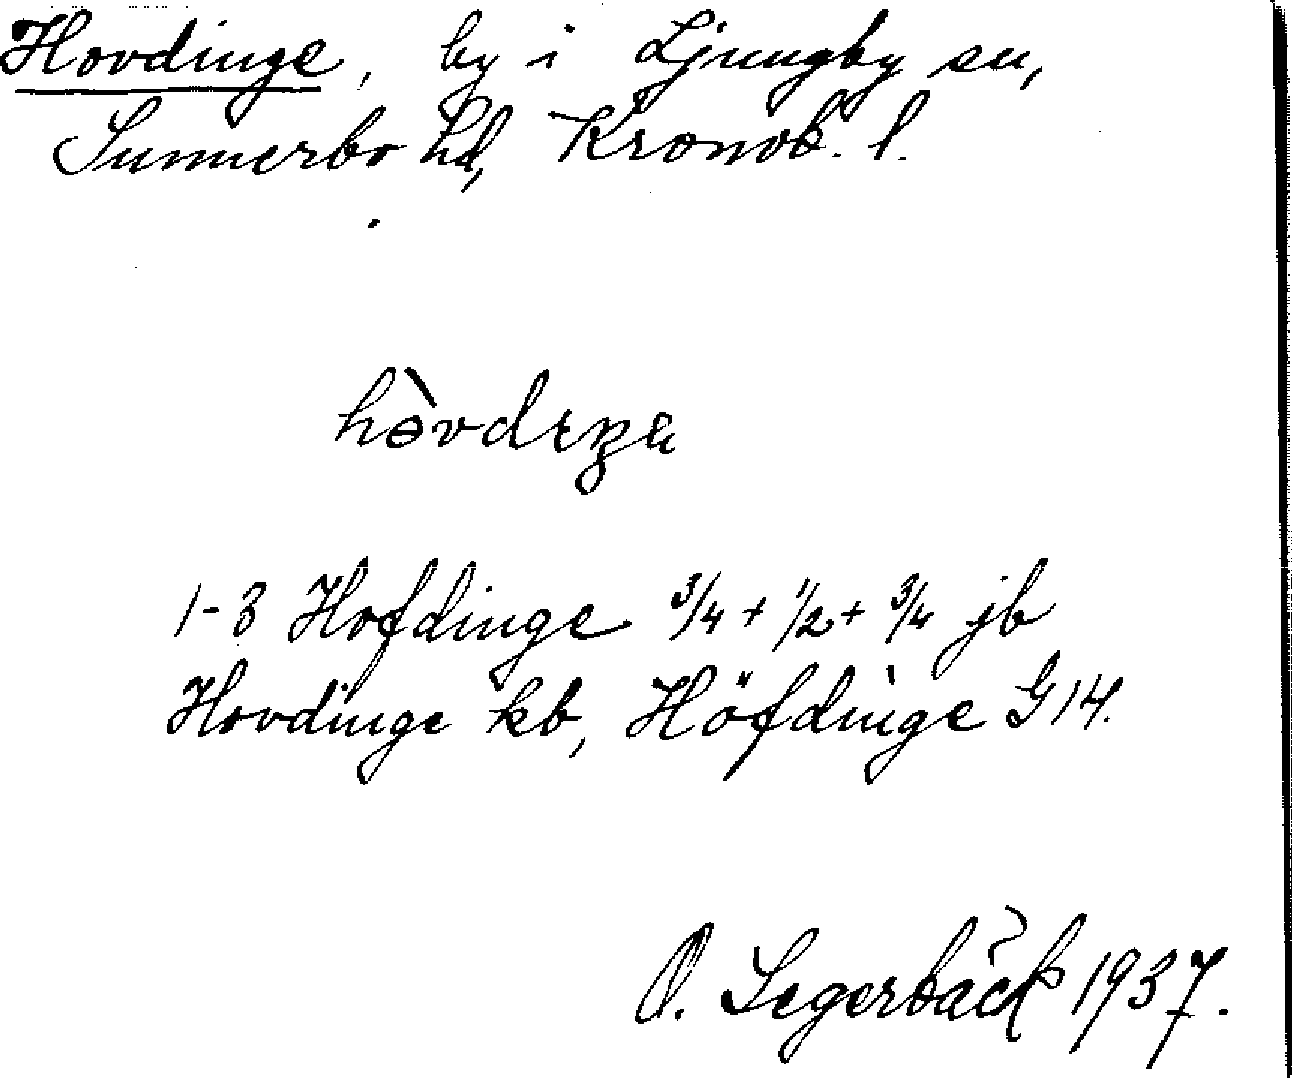 Hovdinge, by i Ljungby sn,
Sunnerbo hd, Kronob. l.
1-3 Hofdinge 3/4 + 1/2 + 3/4 jb
Hovdinge kb, Höfdinge G14.
O. Segerbäck 1937.